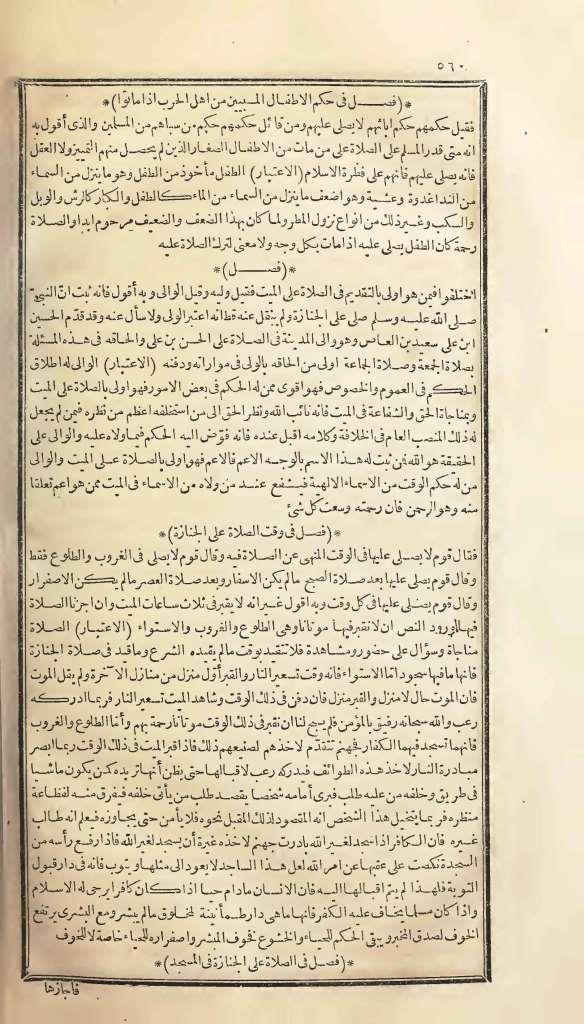 ٥٦٠
*(فصــل فى حكم الاطفال المسبيين من اهل الحرب اذا ماتوا)*
فقيل حكمهم حكم آبائهم لا يصلى عليهم ومن قائل حكمهم حكم من سباهم من المسلمين والذى أقول به
انه متى قدر المسلم على الصلاة على من مات من الاطفال الصغار الذين لم يحصل منهم التمييز ولا العقل
فانه يصلى عليهم فانهم على فطرة الاسلام (الاعتبار) الطفل مأخوذ من الطفل وهو ما ينزل من السماء
من الندا غدوة وعشية وهو اضعف ما ينزل من السماء من الماء كالطفل والكبار كالرش والوبل
والسكب وغير ذلك من انواع نزول المطر ولما كان بهذا الضعف والضعيف مرحوم ابدا والصلاة
رحمة كان الطفل يصلى عليه اذا مات بكل وجه ولا معنى لترك الصلاة عليه
*(فصــل)*
اختلفوا فيمن هو اولى بالتقديم فى الصلاة على الميت فقيل وليه وقيل الوالى وبه أقول فانه ثبت انّ النبىّ
صلى الله عليه وسلم صلى على الجنازة ولم ينقل عنه قط انه اعتبر الولى ولا سأل عنه وقد قدّم الحسين
ابن على سعيد بن العاص وهو والى المدينة فى الصلاة على الحسن بن على والحاقه فى هذه المسئلة
بصلاة الجمعة وصلاة الجماعة اولى من الحاقه بالولى فى مواراته ودفنه (الاعتبار) الوالى له اطلاق
الحكم فى العموم والخصوص فهو اقوى ممن له الحكم فى بعض الامور فهو اولى بالصلاة على الميت
وبمناجاة الحق والشفاعة فى الميت فانه نائب الله ونظر الحق الى من استخلفه اعظم من نظره فيمن لم يجعل
له ذلك المنصب العام فى الخلافة وكلامه اقبل عنده فانه فوّض اليه الحكم فيما ولاه عليه والوالى على
الحقيقة هو الله فمن ثبت له هذا الاسم بالوجه الاعم فالاعم فهو اولى بالصلاة على الميت والوالى
من له حكم الوقت من الاسماء الالهية فيشفع عند من ولاه من الاسماء فى الميت ممن هو اعم تعلقا
منه وهو الرحمن فان رحمته وسعت كل شئ
*(فصل فى وقت الصلاة على الجنازة)*
فقال قوم لا يصلى عليها فى الوقت المنهى عن الصلاة فيه وقال قوم لا يصلى فى الغروب والطلوع فقط
وقال قوم يصلى عليها بعد صلاة الصبح ما لم يكن الاسفار وبعد صلاة العصر ما لم يكن الاصفرار
وقال قوم يصلى عليها فى كل وقت وبه اقول غير انه لا يقبر فى ثلاث ساعات الميت وان اجزنا الصلاة
فيها لورود النص ان لا نقبر فيها موتانا وهى الطلوع والغروب والاستواء (الاعتبار) الصلاة
مناجاة وسؤال على حضور ومشاهدة فلا تتقيد بوقت ما لم يقيده الشرع وما قيد فى صلاة الجنازة
فانها ما فيها سجود امّا الاستواء فانه وقت تسعير النار والقبر أول منزل من منازل الآخرة ولم يقل الموت
فان الموت حال لا منزل والقبر منزل فان دفن فى ذلك الوقت وشاهد الميت تسعير النار فربما ادركه
رعب والله سبحانه رفيق بالمؤمن فلم يبح لنا ان نقبر فى ذلك الوقت موتانا رحمة بهم وأمّا الطلوع والغروب
فانهما تسجد فيهما الكفار فجهنم تتقدّم لاخذهم لصنيعهم ذلك فاذا قبر الميت فى ذلك الوقت ربما ابصر
مبادرة النار لاخذ هذه الطوائف فيدركه رعب لاقبالها حتى يظن أنها تريده كمن يكون ماشيا
فى طريق وخلفه من عليه طلب فيرى أمامه شخصا يقصد طلب من يأتى خلفه فيفرق منه لفظاعة
منظره فربما يتخيل هذا الشخص انه المقصود لذلك المقبل نحوه فلا يأمن حتى يجاوزه فيعلم انه طالب
غيره فان الكافر اذا سجد لغير الله بادرت جهنم لاخذه غيرة أن يسجد لغير الله فاذا رفع رأسه من
السجدة نكصت على عقبها عن امر الله لعل هذا الساجد لا يعود الى مثلها ويتوب فانه فى دار قبول
التوبة فلهذا لم يتم اقبالها اليه فان الانسان ما دام حيا اذا كان كافرا يرجى له الاسلام
واذا كان مسلما يخاف عليه الكفر فانها ما هى دار طمأنينة لمخلوق ما لم يبشر ومع البشرى يرتفع
الخوف لصدق المخبر ويبقى الحكم للحياء والخشوع فخوف المبشر واصفراره للحياء خاصة لا للخوف
*(فصل فى الصلاة على الجنازة فى المسجد)*
فاجازها